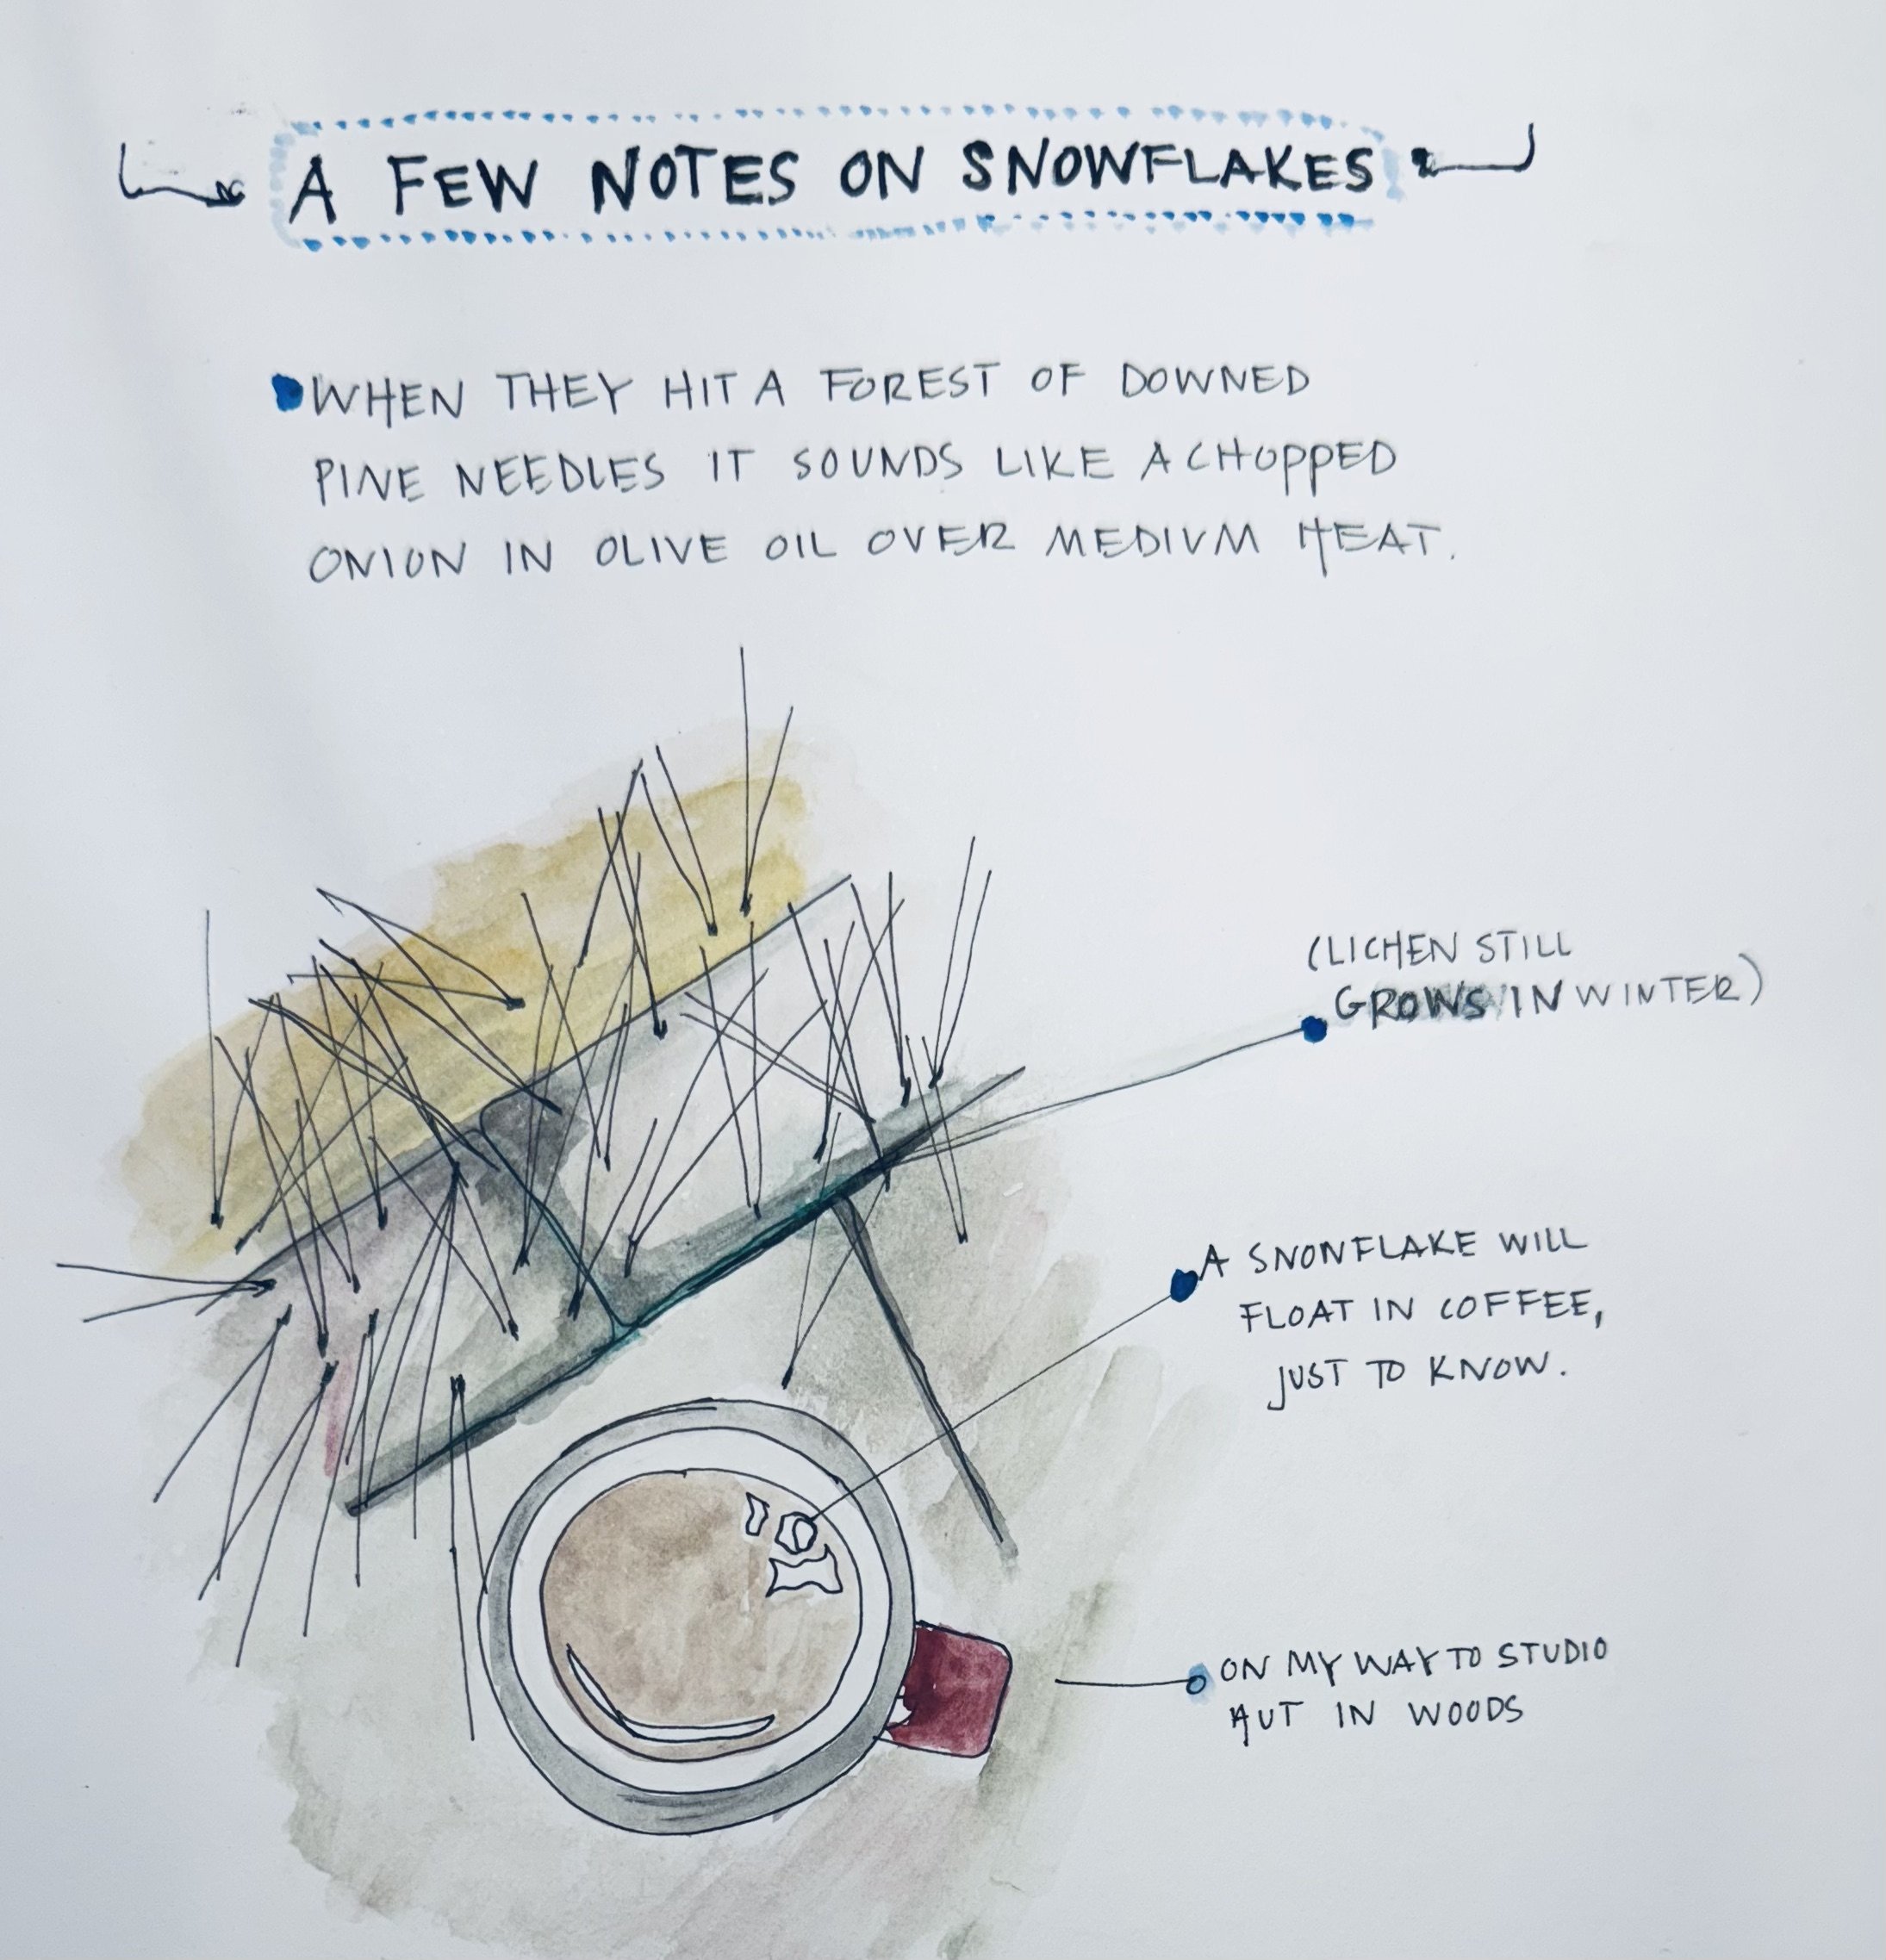 A FEW NOTES ON SNOWFLAKES
WHEN THEY HIT A FOREST OF DOWNED
PINE NEEDLES IT SOUNDS LIKE A CHOPPED
ONION IN OLIVE OIL OVER MEDIUM HEAT.
(LICHEN STILL
GROWS IN WINTER)
A SNOWFLAKE WILL
FLOAT IN COFFEE,
JUST TO KNOW.
ON MY WAY TO STUDIO
HUT IN WOODS